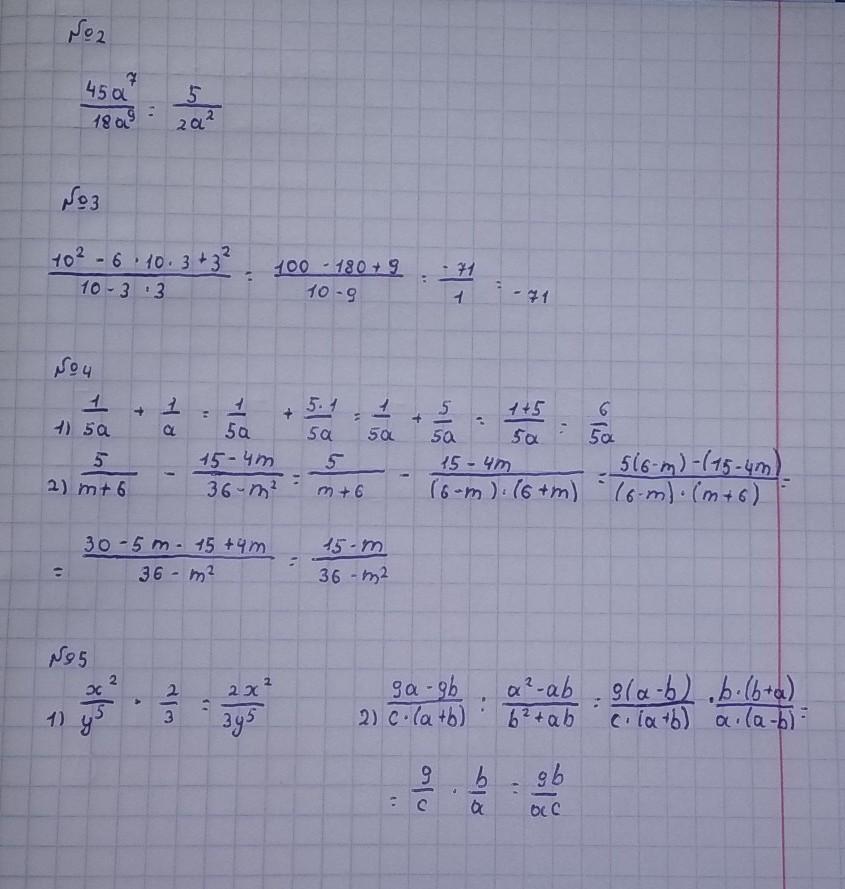 №2
45a⁷/18a⁹ = 5/2a²
№3
(10² - 6 · 10 · 3 + 3²)/(10 - 3 · 3) = (100 - 180 + 9)/(10 - 9) = -71/1 = -71
№4
1) 1/5a + 1/a = 1/5a + 5·1/5a = 1/5a + 5/5a = (1+5)/5a = 6/5a
2) 5/(m+6) - (15-4m)/(36-m²) = 5/(m+6) - (15-4m)/((6-m)·(6+m)) = (5(6-m)-(15-4m))/((6-m)·(m+6)) =
= (30-5m-15+4m)/(36-m²) = (15-m)/(36-m²)
№5
1) x²/y⁵ · 2/3 = 2x²/3y⁵ 2) (9a-9b)/(c·(a+b)) : (a²-ab)/(b²+ab) = 9(a-b)/(c·(a+b)) · b·(b+a)/(a·(a-b)) =
= 9/c · b/a = 9b/ac